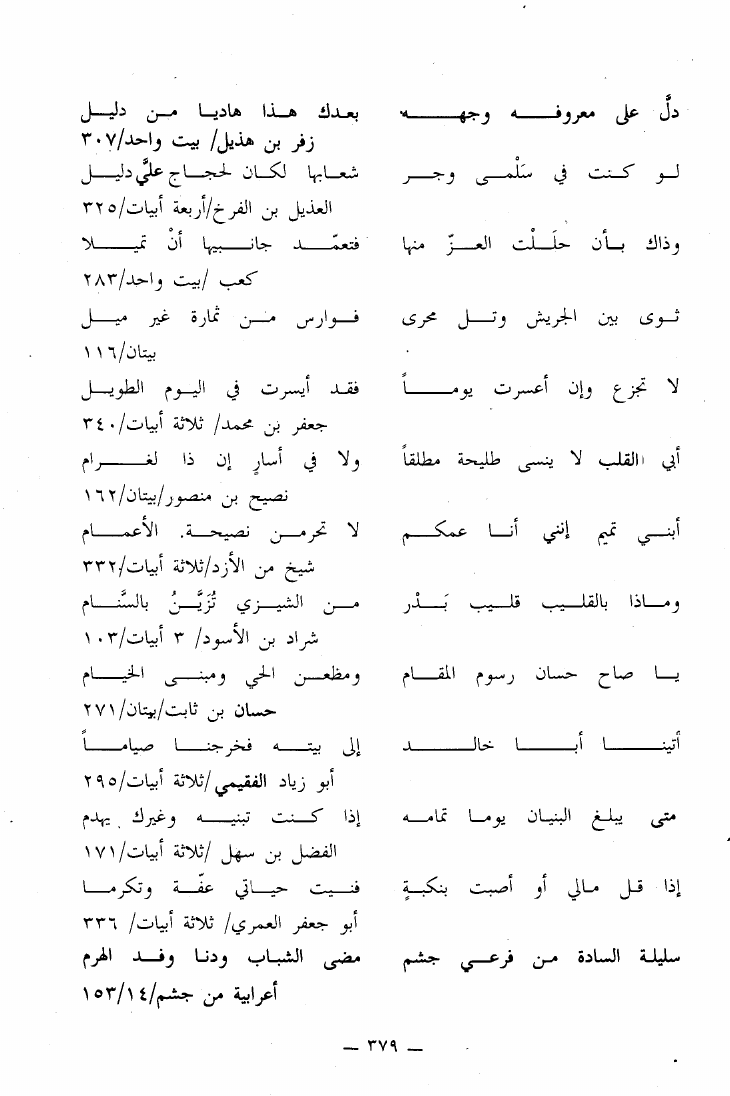 دلَّ على معروفه وجهه بعدك هذا هاديا من دليل
زفر بن هذيل/ بيت واحد/٣٠٧
لو كنت في سَلْمى وجر شعابها لكان لحجاج عليَّ دليل
العذيل بن الفرخ/أربعة أبيات/٣٢٥
وذاك بأن حلَلْت العزّ منها فتعمّد جانبيها أنْ تميلا
كعب /بيت واحد/٢٨٣
ثوى بين الجريش وتل محرى فوارس من ثمارة غير ميل
بيتان/١١٦
لا تجزع وإن أعسرت يوماً فقد أيسرت في اليوم الطويل
جعفر بن محمد/ ثلاثة أبيات/٣٤٠
أبي القلب لا ينسى طليحة مطلقاً ولا في أسارٍ إن ذا لغرام
نصيح بن منصور/بيتان/١٦٢
أبني تميم إنني أنا عمكم لا تحرمن نصيحة. الأعمام
شيخ من الأزد/ثلاثة أبيات/٣٣٢
وماذا بالقليب قليب بَدْر من الشيزي تُزَيَّنُ بالسَّنام
شراد بن الأسود/ ٣ أبيات/١٠٣
يا صاح حسان رسوم المقام ومظعن الحي ومبنى الخيام
حسان بن ثابت/بيتان/٢٧١
أتينا أبا خالد إلى بيته فخرجنا صياماً
أبو زياد الفقيمي/ثلاثة أبيات/٢٩٥
متى يبلغ البنيان يوما تمامه إذا كنت تبنيه وغيرك يهدم
الفضل بن سهل /ثلاثة أبيات/١٧١
إذا قل مالي أو أصبت بنكبةٍ فنيت حياتي عفّة وتكرما
أبو جعفر العمري/ ثلاثة أبيات/ ٣٣٦
سليلة السادة من فرعي جشم مضى الشباب ودنا وفد الهرم
أعرابية من جشم/١٥٣/١٤
— ٣٧٩ —